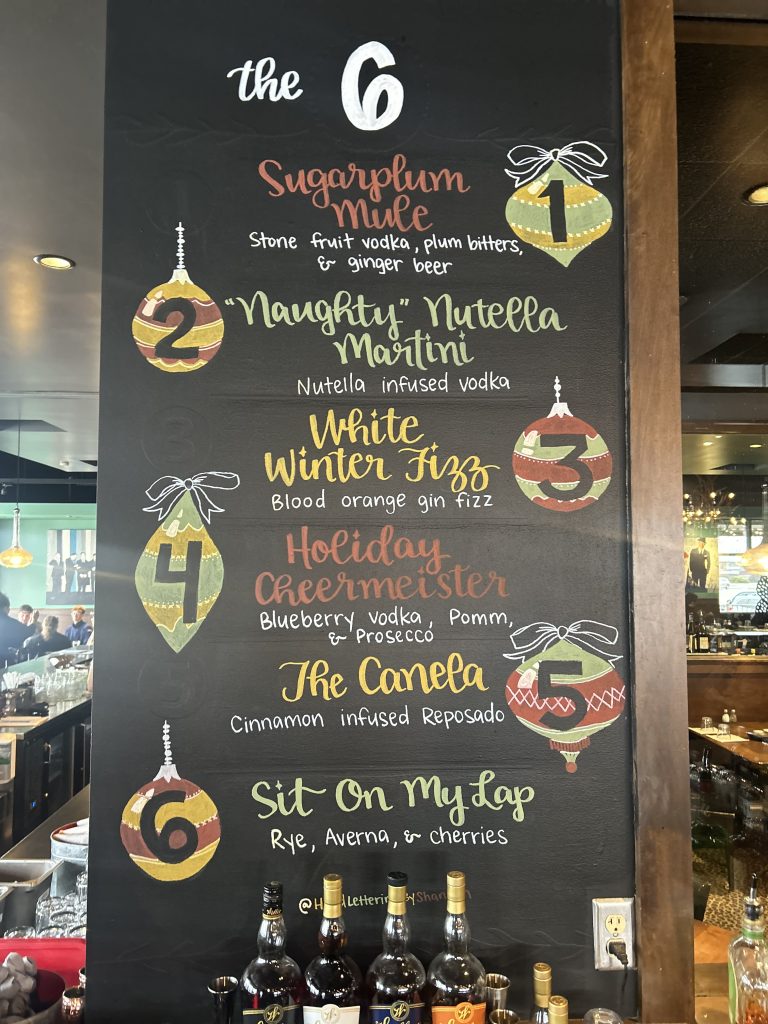 the 6
Sugarplum
Mule
1
Stone fruit vodka, plum bitters,
& ginger beer
2
"Naughty" Nutella
Martini
Nutella infused vodka
White
Winter Fizz
3
Blood orange gin fizz
4
Holiday
Cheermeister
Blueberry vodka, Pomm,
& Prosecco
The Canela
5
Cinnamon infused Reposado
6
Sit On My Lap
Rye, Averna, & cherries